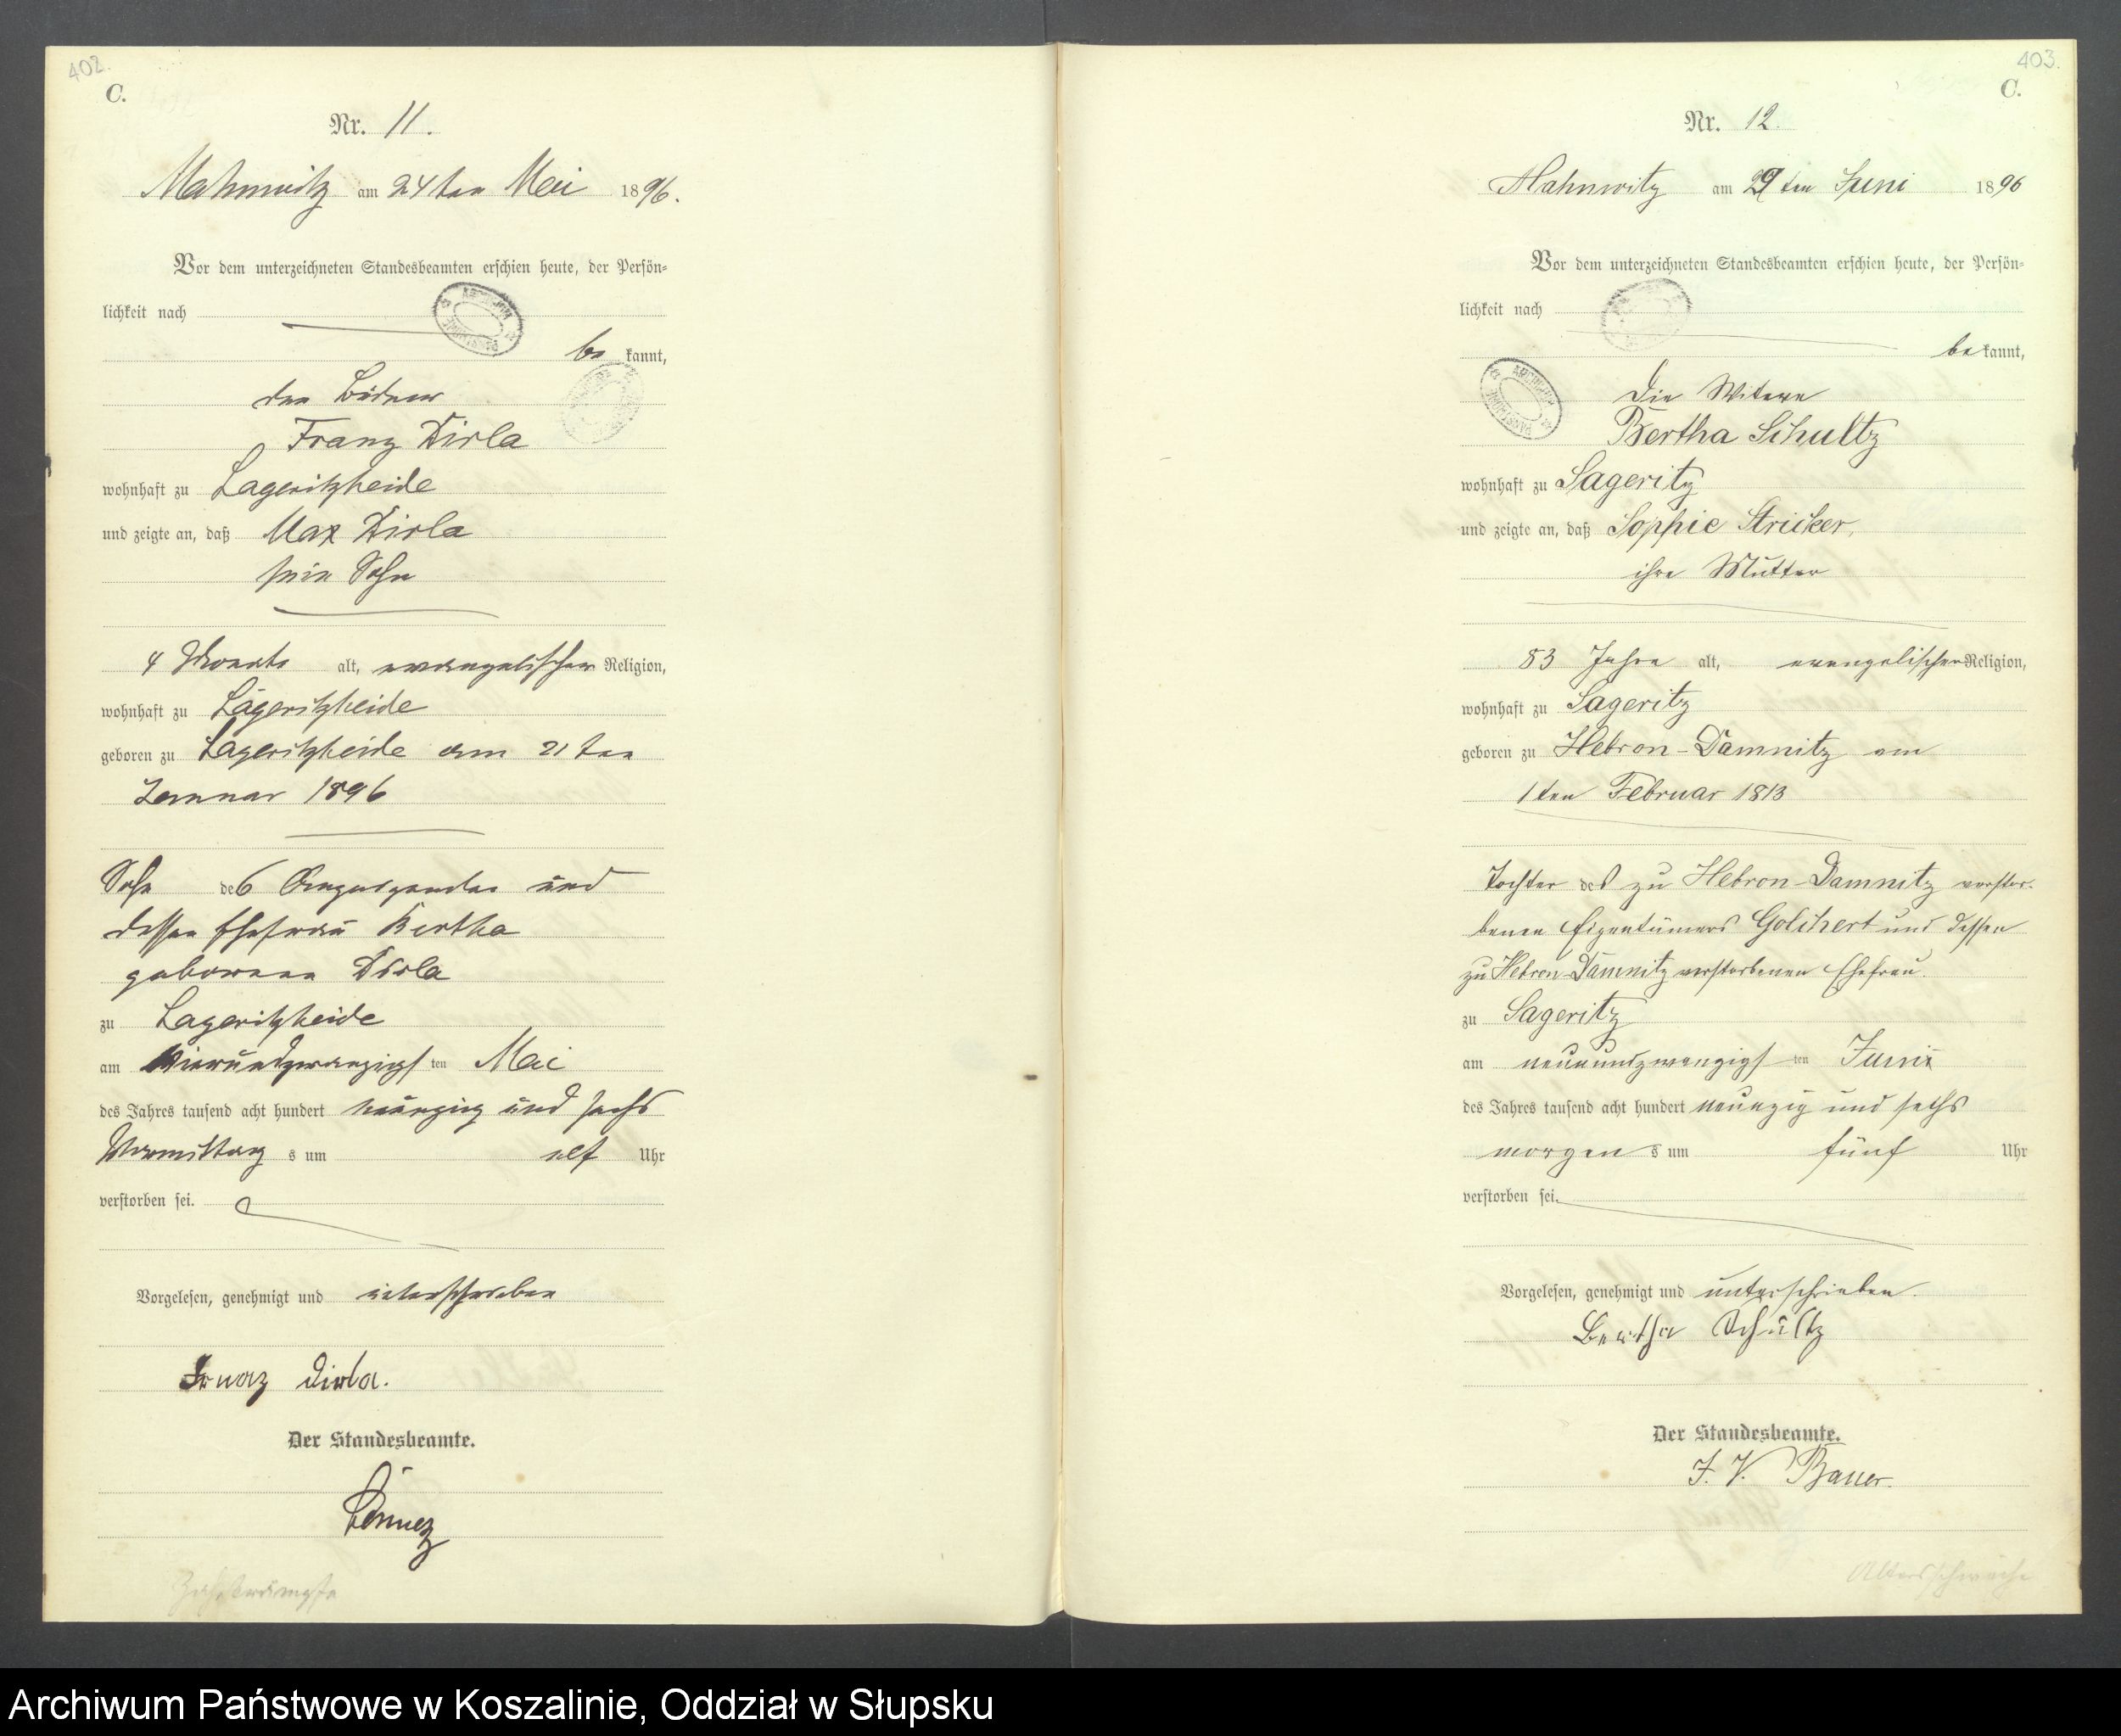 402.
C.
Nr. 11.
Mahnwitz am 24ten Mai 1896.
Vor dem unterzeichneten Standesbeamten erschien heute, der Persön-
lichkeit nach
be kannt,
der Büdner
Franz Dirla
wohnhaft zu Lageritzheide
und zeigte an, daß Max Dirla
sein Sohn
4 Monate alt, evangelischer Religion,
wohnhaft zu Lageritzheide
geboren zu Lageritzheide am 21ten
Januar 1896
Sohn des Anzeigenden und
dessen Ehefrau Bertha
geborenen Dirla
zu Lageritzheide
am vierundzwanzigsten Mai
des Jahres tausend acht hundert neunzig und sechs
Vormittags um elf Uhr
verstorben sei.
Vorgelesen, genehmigt und unterschrieben
Franz Dirla.
Der Standesbeamte.
Zahnkrämpfe
403.
C.
Nr. 12.
Mahnwitz am 29ten Juni 1896
Vor dem unterzeichneten Standesbeamten erschien heute, der Persön-
lichkeit nach
be kannt,
die Witwe
Bertha Schultz
wohnhaft zu Sageritz
und zeigte an, daß Sophie Stricker,
ihre Mutter
83 Jahre alt, evangelischer Religion,
wohnhaft zu Sageritz
geboren zu Hebron-Damnitz am
1ten Februar 1813
Tochter des zu Hebron-Damnitz verstor-
benen Eigentümers Golchert und dessen
zu Hebron-Damnitz verstorbenen Ehefrau.
zu Sageritz
am neunundzwanzigsten Juni
des Jahres tausend acht hundert neunzig und sechs
morgens um fünf Uhr
verstorben sei.
Vorgelesen, genehmigt und unterschrieben.
Bertha Schultz
Der Standesbeamte.
J. V. Bauer.
Altersschwäche
Archiwum Państwowe w Koszalinie, Oddział w Słupsku